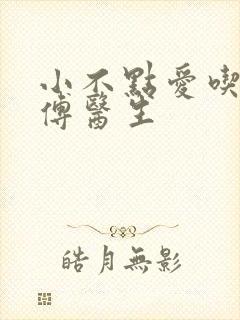 小不點愛喫
傅醫生
皓月無影